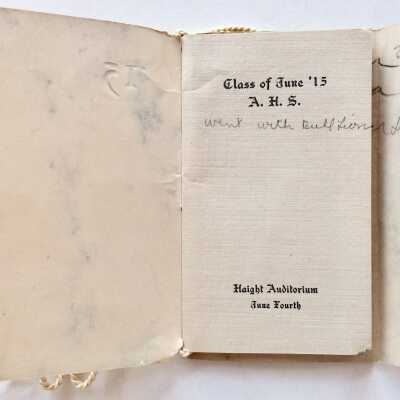 Class of June '15
A. H. S.
went with
Haight Auditorium
June Fourth